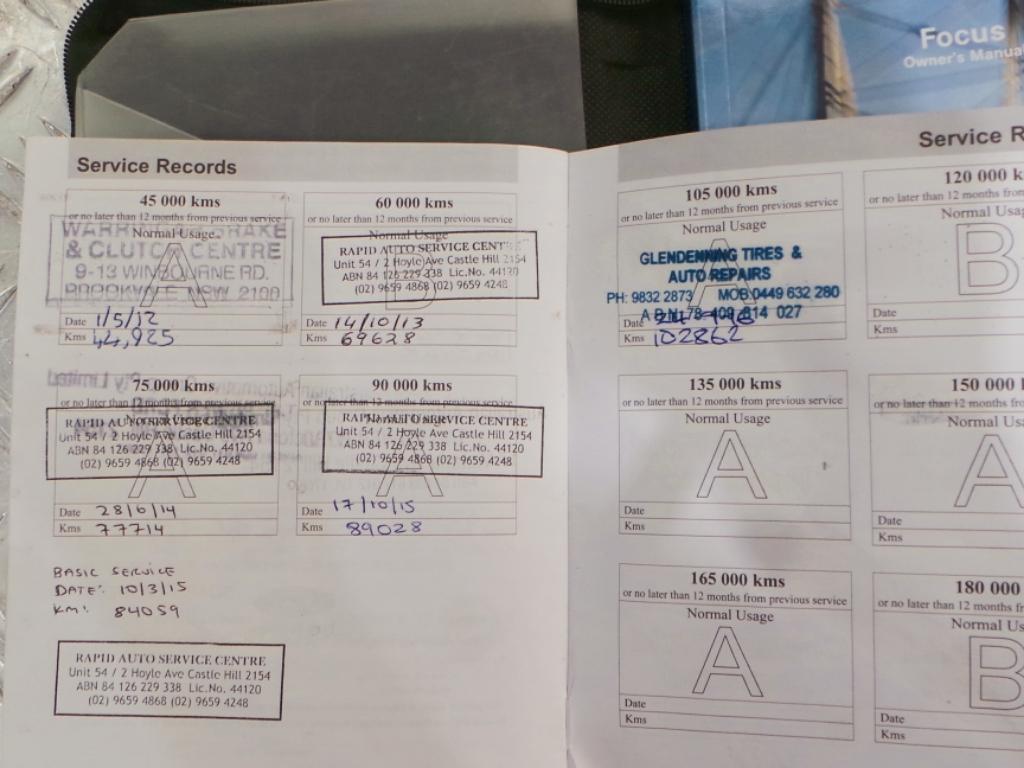 Focus
Owner's Manua
Service Records
45 000 kms
or no later than 12 months from previous service
Normal Usage
& CLUTCH CENTRE
9-13 WINBOURNE RD.
BROOKVALE NSW 2100
A
Date 1/5/12
Kms 44,925
60 000 kms
or no later than 12 months from previous service
Normal Usage
RAPID AUTO SERVICE CENTRE
Unit 54 / 2 Hoyle Ave Castle Hill 2154
ABN 84 126 229 338 Lic.No. 44120
(02) 9659 4868 (02) 9659 4248
B
Date 14/10/13
Kms 69628
75 000 kms
or no later than 12 months from previous service
Normal Usage
RAPID AUTO SERVICE CENTRE
Unit 54 / 2 Hoyle Ave Castle Hill 2154
ABN 84 126 229 338 Lic.No. 44120
(02) 9659 4868 (02) 9659 4248
A
Date 28/6/14
Kms 77714
90 000 kms
or no later than 12 months from previous service
RAPID AUTO SERVICE CENTRE
Unit 54 / 2 Hoyle Ave Castle Hill 2154
ABN 84 126 229 338 Lic.No. 44120
(02) 9659 4868 (02) 9659 4248
A
Date 17/10/15
Kms 89028
BASIC SERVICE
DATE: 10/3/15
KM: 84059
RAPID AUTO SERVICE CENTRE
Unit 54 / 2 Hoyle Ave Castle Hill 2154
ABN 84 126 229 338 Lic.No. 44120
(02) 9659 4868 (02) 9659 4248
Service R
105 000 kms
or no later than 12 months from previous service
Normal Usage
A
GLENDENNING TIRES &
AUTO REPAIRS
PH: 9832 2873 MOB:0449 632 280
A B N: 78 409 614 027
Date
Kms 102862
120 000 k
or no later than 12 months from
Normal Usag
B
Date
Kms
135 000 kms
or no later than 12 months from previous service
Normal Usage
A
Date
Kms
150 000
or no later than 12 months fro
Normal Us
A
Date
Kms
165 000 kms
or no later than 12 months from previous service
Normal Usage
A
Date
Kms
180 000
or no later than 12 months fr
Normal Us
B
Date
Kms